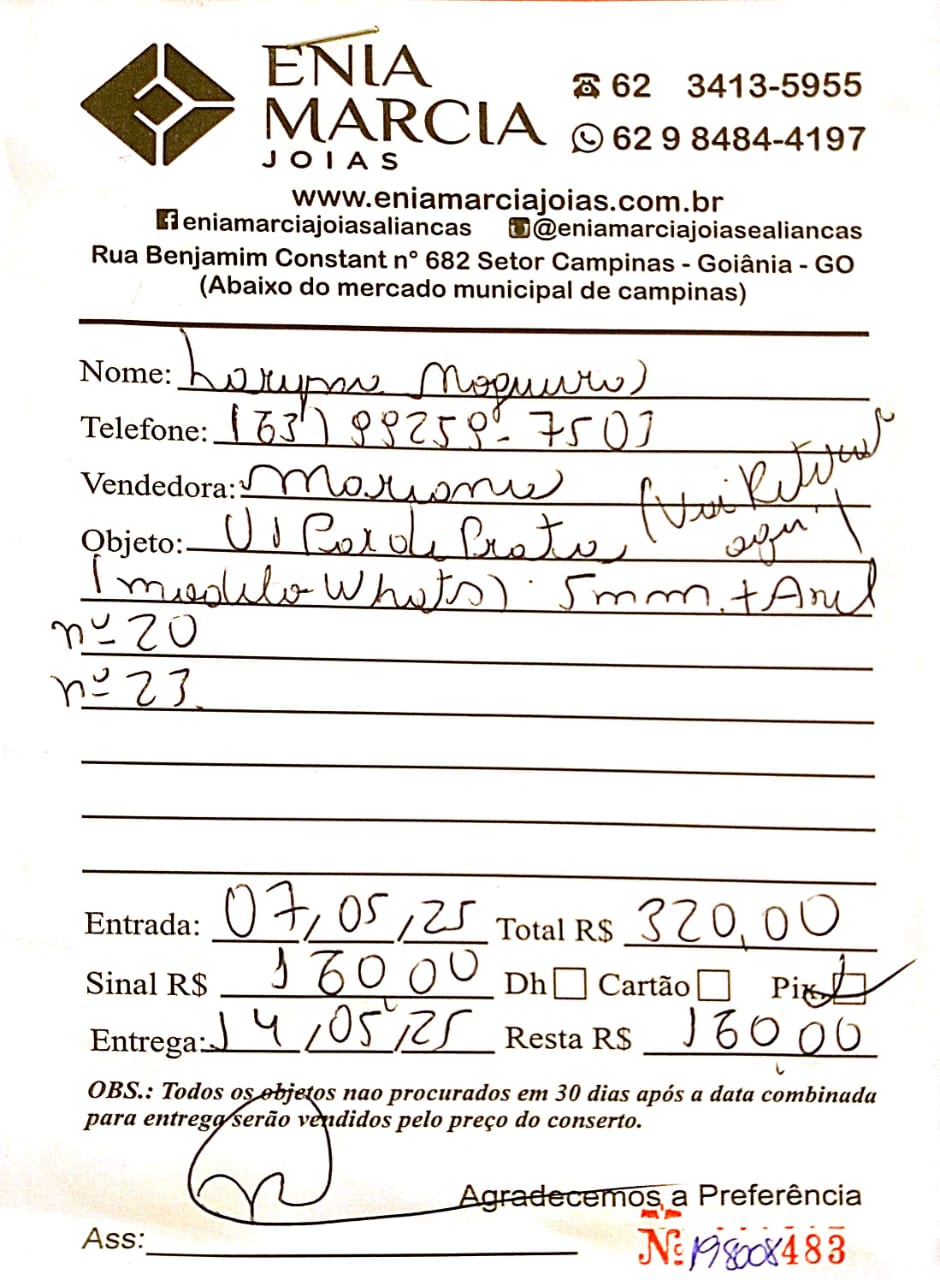 ENIA
MARCIA
JOIAS
62 3413-5955
62 9 8484-4197
www.eniamarciajoias.com.br
eniamarciajoiasaliancas @eniamarciajoiasealiancas
Rua Benjamim Constant n° 682 Setor Campinas - Goiânia - GO
(Abaixo do mercado municipal de campinas)
Nome: Nogueira
Telefone: (63) 99259-7501
Vendedora: Mariana
(Vai Retirar
aqui)
Objeto: 01 Par de Prata
(modelo Whats) 5mm. + Anel
nº 20
nº 23
Entrada: 07/05/25 Total R$ 320,00
Sinal R$ 160,00 Dh Cartão Pix
Entrega: 14/05/25 Resta R$ 160,00
OBS.: Todos os objetos nao procurados em 30 dias após a data combinada
para entrega serão vendidos pelo preço do conserto.
Agradecemos a Preferência
Ass:
Nº 198008483